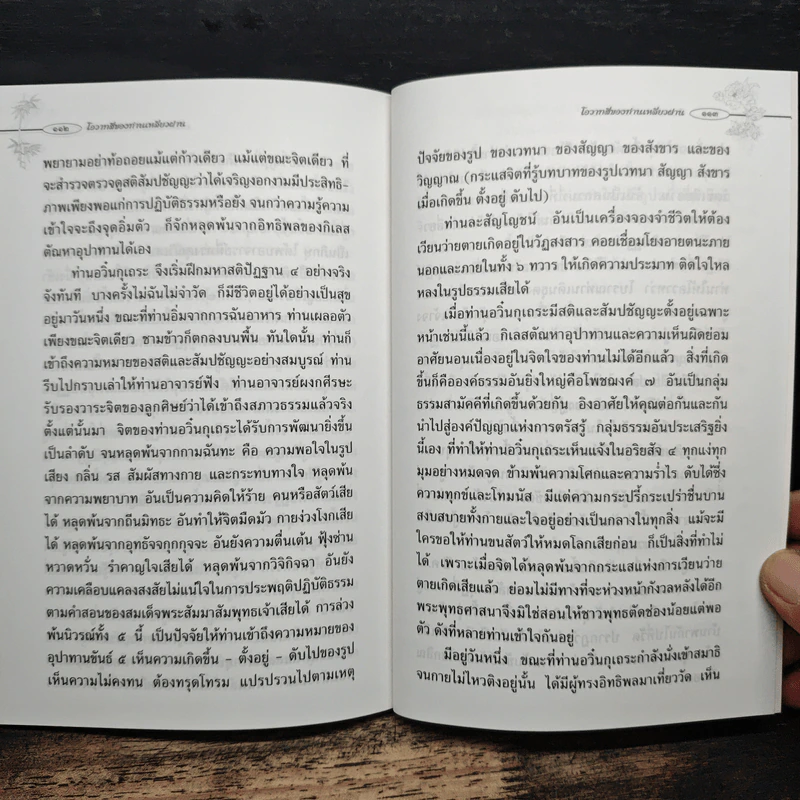 ๑๑๒ โอวาทสี่ของท่านเหลี่ยวฝาน
พยายามอย่าท้อถอยแม้แต่ก้าวเดียว แม้แต่ขณะจิตเดียว ที่
จะสำรวจตรวจดูสติสัมปชัญญะว่าได้เจริญงอกงามมีประสิทธิ-
ภาพเพียงพอแก่การปฏิบัติธรรมหรือยัง จนกว่าความรู้ความ
เข้าใจจะถึงจุดอิ่มตัว ก็จักหลุดพ้นจากอิทธิพลของกิเลส
ตัณหาอุปาทานได้เอง
ท่านอวิ๋นกุเถระ จึงเริ่มฝึกมหาสติปัฏฐาน ๔ อย่างจริง
จังทันที บางครั้งไม่ฉันไม่จำวัด ก็มีชีวิตอยู่ได้อย่างเป็นสุข
อยู่มาวันหนึ่ง ขณะที่ท่านอิ่มจากการฉันอาหาร ท่านเผลอตัว
เพียงขณะจิตเดียว ชามข้าวก็ตกลงบนพื้น ทันใดนั้น ท่านก็
เข้าถึงความหมายของสติและสัมปชัญญะอย่างสมบูรณ์ ท่าน
รีบไปกราบเล่าให้ท่านอาจารย์ฟัง ท่านอาจารย์ผงกศีรษะ
รับรองวาระจิตของลูกศิษย์ว่าได้เข้าถึงสภาวธรรมแล้วจริง
ตั้งแต่นั้นมา จิตของท่านอวิ๋นกุเถระได้รับการพัฒนายิ่งขึ้น
เป็นลำดับ จนหลุดพ้นจากกามฉันทะ คือ ความพอใจในรูป
เสียง กลิ่น รส สัมผัสทางกาย และกระทบทางใจ หลุดพ้น
จากความพยาบาท อันเป็นความคิดให้ร้าย คนหรือสัตว์เสีย
ได้ หลุดพ้นจากถีนมิทธะ อันทำให้จิตมืดมัว กายง่วงโงกเสีย
ได้ หลุดพ้นจากอุทธัจจกุกกุจจะ อันยังความตื่นเต้น ฟุ้งซ่าน
หวาดหวั่น รำคาญใจเสียได้ หลุดพ้นจากวิจิกิจฉา อันยัง
ความเคลือบแคลงสงสัยไม่แน่ใจในการประพฤติปฏิบัติธรรม
ตามคำสอนของสมเด็จพระสัมมาสัมพุทธเจ้าเสียได้ การล่วง
พ้นนิวรณ์ทั้ง ๕ นี้ เป็นปัจจัยให้ท่านเข้าถึงความหมายของ
อุปาทานขันธ์ ๕ เห็นความเกิดขึ้น - ตั้งอยู่ - ดับไปของรูป
เห็นความไม่คงทน ต้องทรุดโทรม แปรปรวนไปตามเหตุ
โอวาทสี่ของท่านเหลี่ยวฝาน ๑๑๓
ปัจจัยของรูป ของเวทนา ของสัญญา ของสังขาร และของ
วิญญาณ (กระแสจิตที่รู้บทบาทของรูปเวทนา สัญญา สังขาร
เมื่อเกิดขึ้น ตั้งอยู่ ดับไป)
ท่านละสัญโญชน์ อันเป็นเครื่องจองจำชีวิตให้ต้อง
เวียนว่ายตายเกิดอยู่ในวัฏสงสาร คอยเชื่อมโยงอายตนะภาย
นอกและภายในทั้ง ๖ ทวาร ให้เกิดความประมาท ติดใจใหล
หลงในรูปธรรมเสียได้
เมื่อท่านอวิ๋นกุเถระมีสติและสัมปชัญญะตั้งอยู่เฉพาะ
หน้าเช่นนี้แล้ว กิเลสตัณหาอุปาทานและความเห็นผิดย่อม
อาศัยนอนเนื่องอยู่ในจิตใจของท่านไม่ได้อีกแล้ว สิ่งที่เกิด
ขึ้นก็คือองค์ธรรมอันยิ่งใหญ่คือโพชฌงค์ ๗ อันเป็นกลุ่ม
ธรรมสามัคคีที่เกิดขึ้นด้วยกัน อิงอาศัยให้คุณต่อกันและกัน
นำไปสู่องค์ปัญญาแห่งการตรัสรู้ กลุ่มธรรมอันประเสริฐยิ่ง
นี้เอง ที่ทำให้ท่านอวิ๋นกุเถระเห็นแจ้งในอริยสัจ ๔ ทุกแง่ทุก
มุมอย่างหมดจด ข้ามพ้นความโศกและความร่ำไร ดับได้ซึ่ง
ความทุกข์และโทมนัส มีแต่ความกระปรี้กระเปร่าชื่นบาน
สงบสบายทั้งกายและใจอยู่อย่างเป็นกลางในทุกสิ่ง แม้จะมี
ใครขอให้ท่านขนสัตว์ให้หมดโลกเสียก่อน ก็เป็นสิ่งที่ทำไม่
ได้ เพราะเมื่อจิตได้หลุดพ้นจากกระแสแห่งการเวียนว่าย
ตายเกิดเสียแล้ว ย่อมไม่มีทางที่จะห่วงหน้ากังวลหลังได้อีก
พระพุทธศาสนาจึงมิใช่สอนให้ชาวพุทธตัดช่องน้อยแต่พอ
ตัว ดังที่หลายท่านเข้าใจกันอยู่
มีอยู่วันหนึ่ง ขณะที่ท่านอวิ๋นกุเถระกำลังนั่งเข้าสมาธิ
จนกายไม่ไหวติงอยู่นั้น ได้มีผู้ทรงอิทธิพลมาเที่ยววัด เห็น